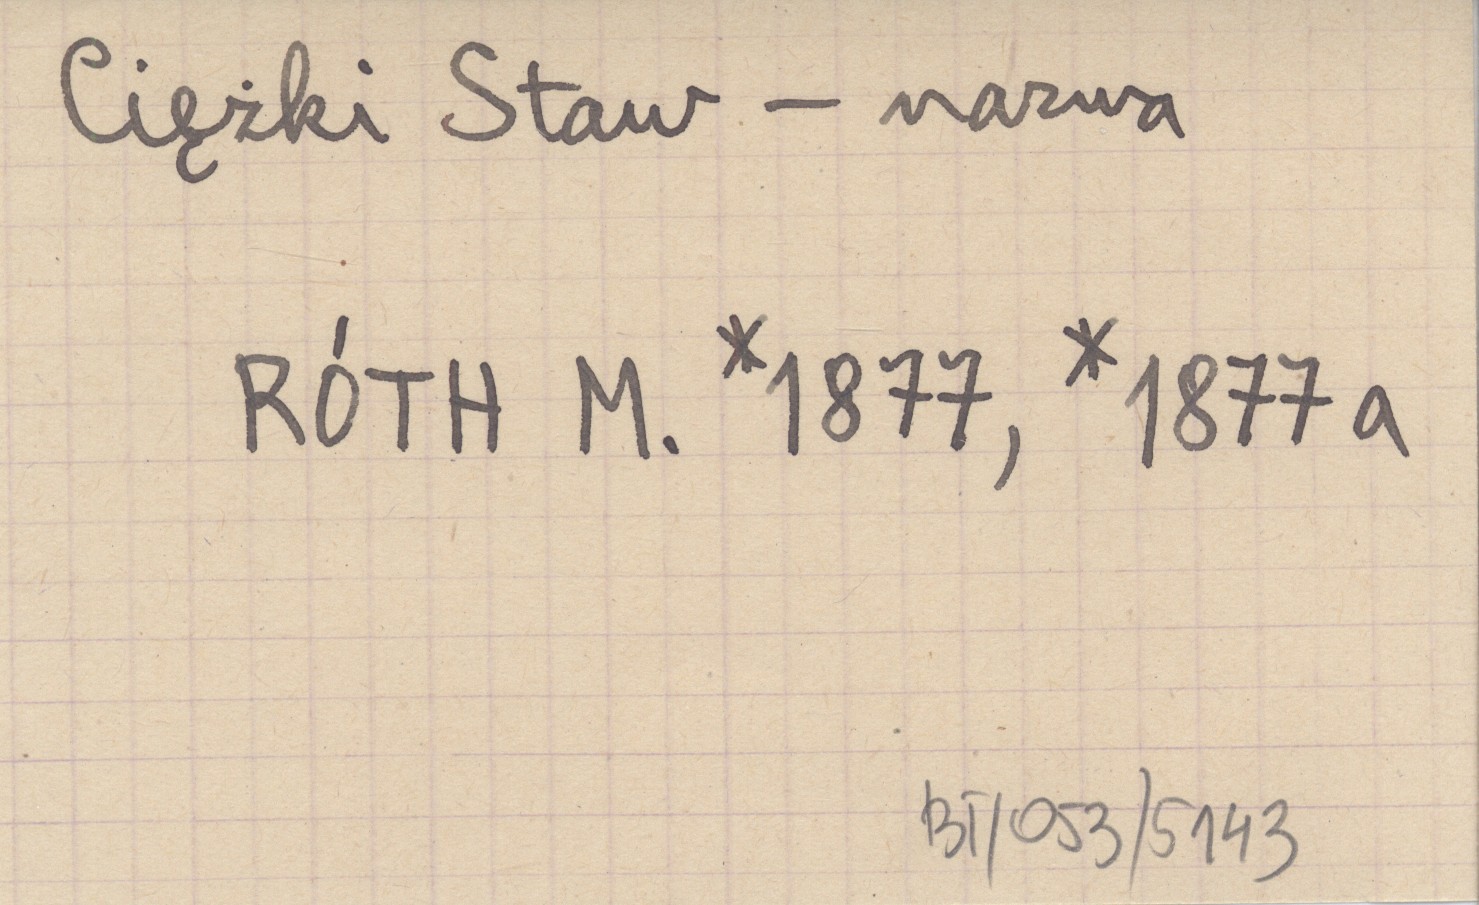 Ciężki Staw – nazwa
RÓTH M. *1877, *1877a
BT/053/5143